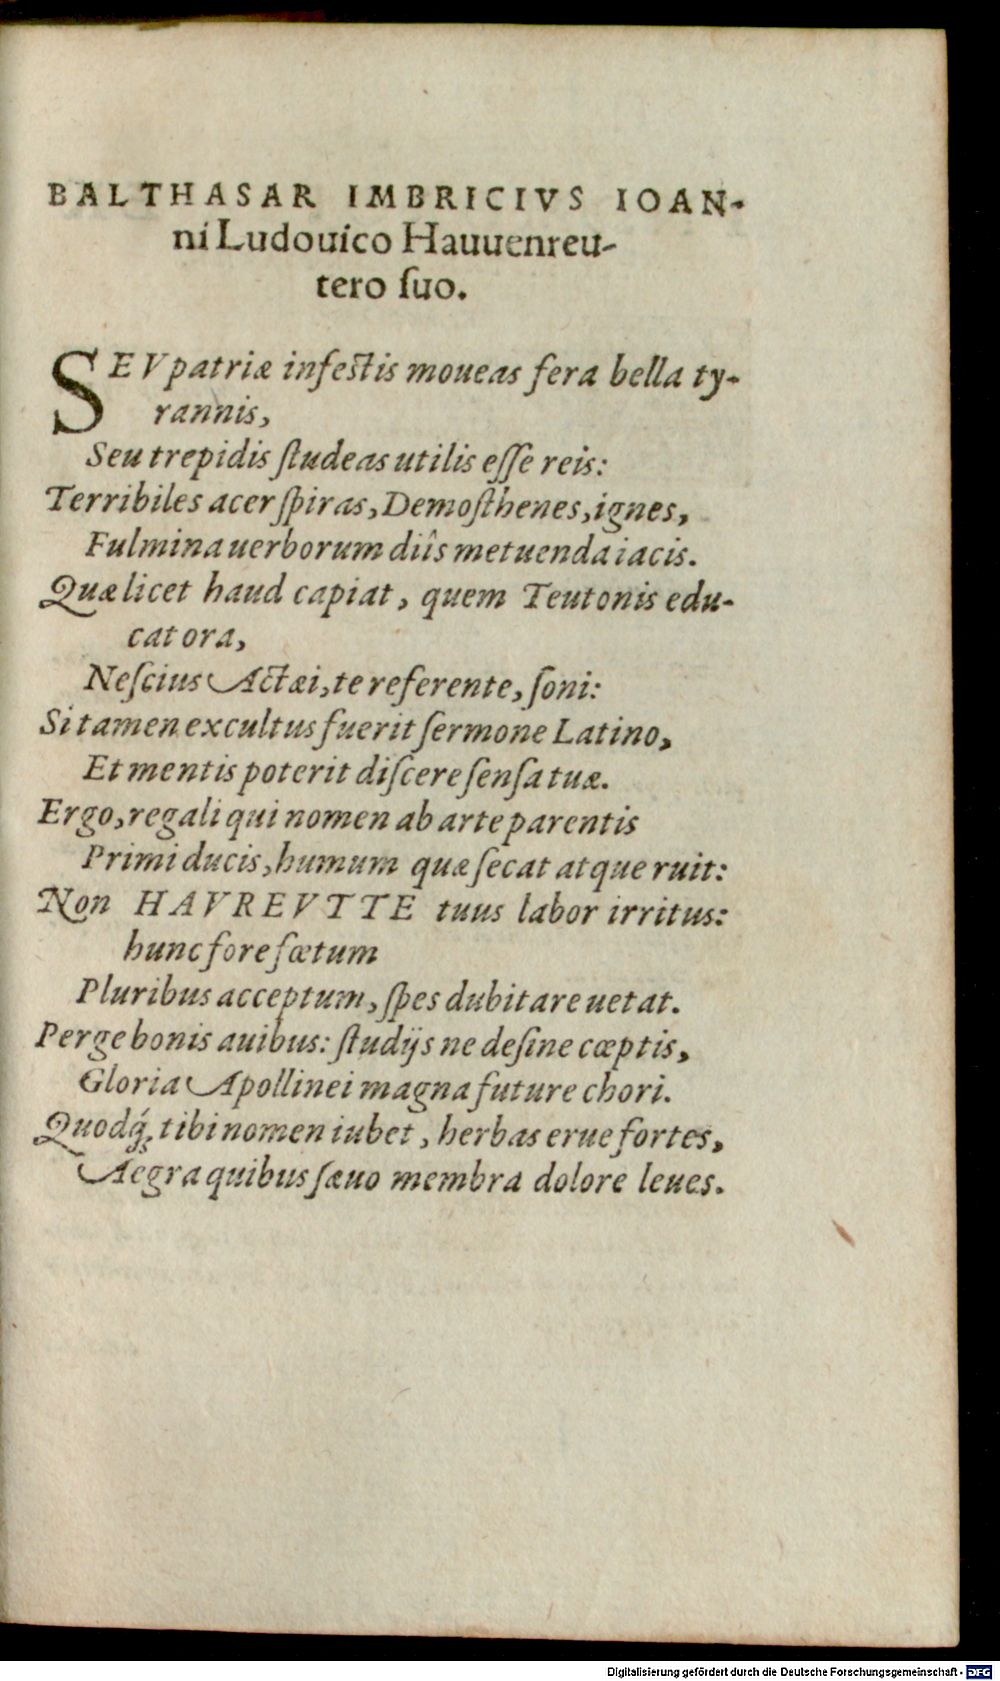 BALTHASAR IMBRICIVS IOAN-
ni Ludouico Hauuenreu-
tero ſuo.
SEV patriæ infeſtis moueas fera bella ty-
rannis,
Seu trepidis ſtudeas utilis eſſe reis:
Terribiles acer ſpiras, Demoſthenes, ignes,
Fulmina uerborum diîs metuenda iacis.
Quæ licet haud capiat, quem Teutonis edu-
cat ora,
Neſcius Actæi, te referente, ſoni:
Si tamen excultus fuerit ſermone Latino,
Et mentis poterit diſcere ſenſa tuæ.
Ergo, regali qui nomen ab arte parentis
Primi ducis, humum quæ ſecat atque ruit:
Non HAVREVTTE tuus labor irritus:
hunc fore fœtum
Pluribus acceptum, ſpes dubitare uetat.
Perge bonis auibus: ſtudijs ne deſine cœptis,
Gloria Apollinei magna future chori.
Quodq́; tibi nomen iubet, herbas erue fortes,
Aegra quibus ſæuo membra dolore leues.
Digitalisierung gefördert durch die Deutsche Forschungsgemeinschaft - DFG